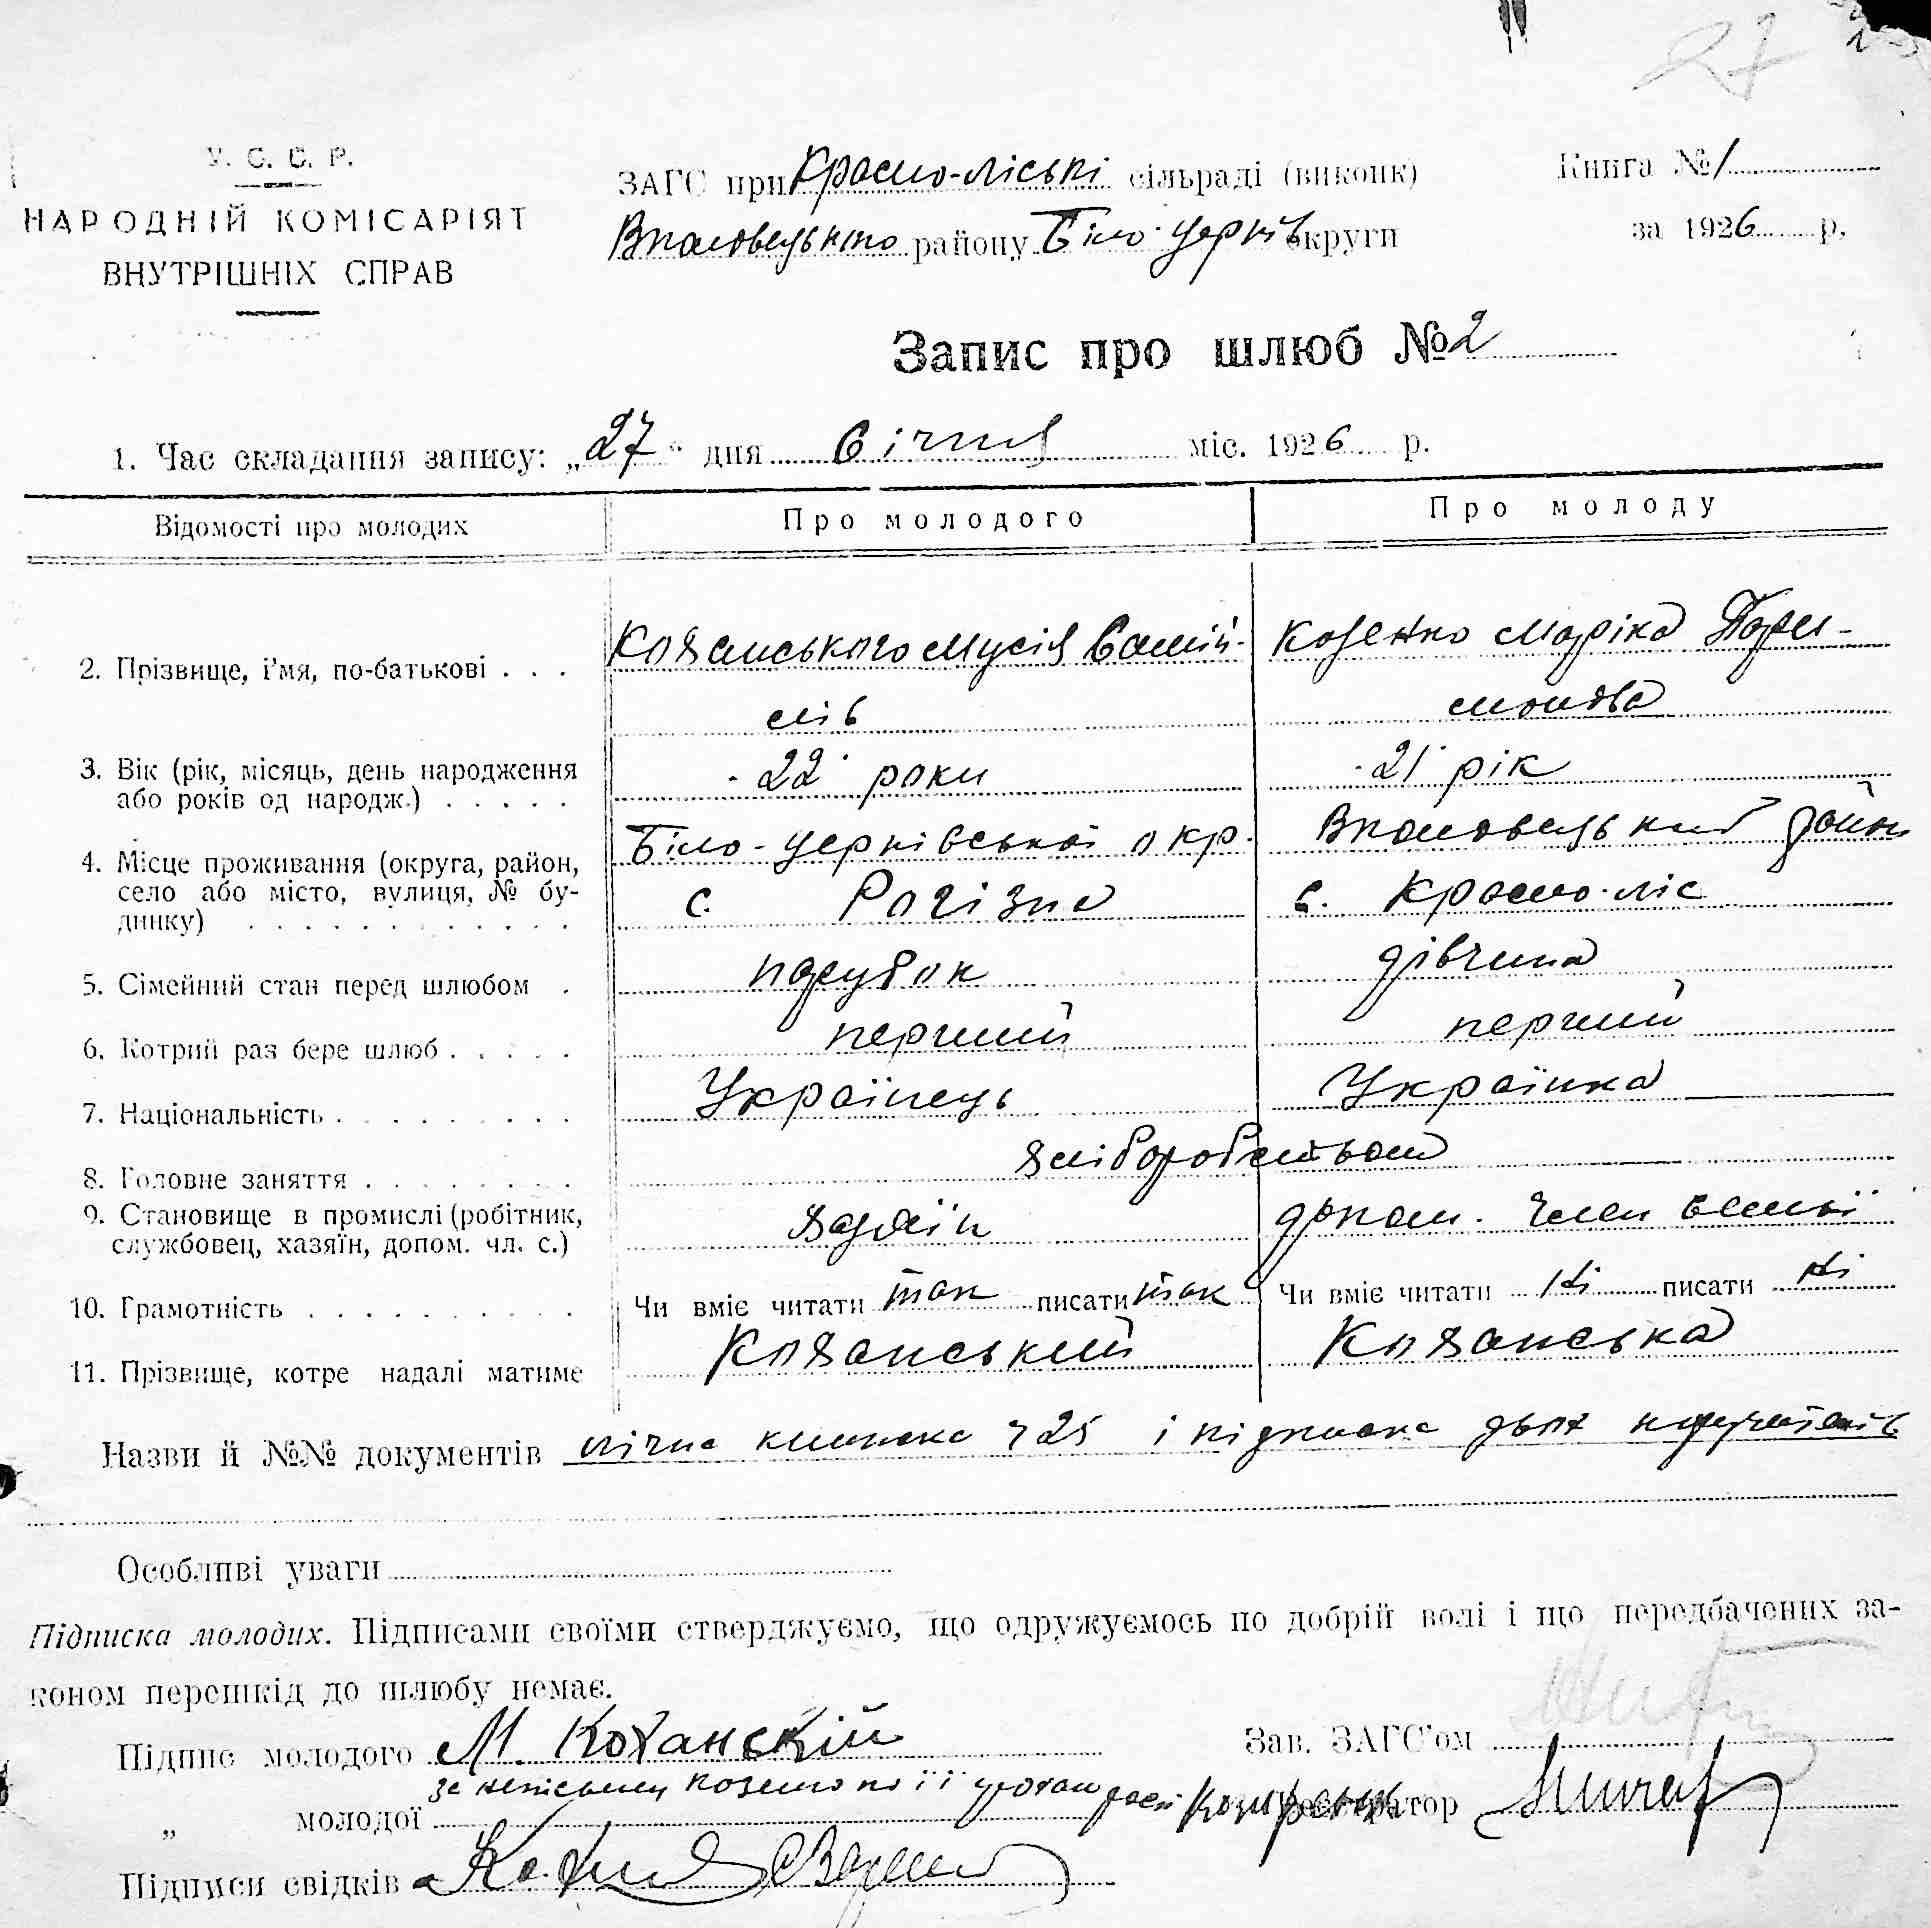 27
У. С. С. Р.
НАРОДНІЙ КОМІСАРІЯТ
ВНУТРІШНІХ СПРАВ
ЗАГС при Красно-ліські сільраді (виконк)
району Біло-Церків округи
Книга № 1
за 1926 р.
Запис про шлюб № 2
1. Час складання запису: „27“ дня Січня міс. 1926 р.
Відомості про молодих
Про молодого
Про молоду
2. Прізвище, і'мя, по-батькові . . .
Коханського Мусія Самій-
лів
Козенко Маріка Пари-
монова
3. Вік (рік, місяць, день народження
або років од народж.) . . . . .
22 роки
21 рік
4. Місце проживання (округа, район,
село або місто, вулиця, № бу-
динку) . . . . . . . . . . . .
Біло-Церківської окр.
с. Рогізна
район
с. Красно-ліс
5. Сімейний стан перед шлюбом .
парубок
дівчина
6. Котрий раз бере шлюб . . . . .
перший
перший
7. Національність . . . . . . . . .
Українець
Українка
8. Головне заняття . . . . . . . .
хліборобством
9. Становище в промислі (робітник,
службовец, хазяїн, допом. чл. с.)
хазяїн
допом. член семьї
10. Грамотність . . . . . . . . . .
Чи вміє читати так писати так
Чи вміє читати ні писати ні
11. Прізвище, котре надалі матиме
Коханський
Коханська
Назви й №№ документів лічна книжка ч 25 і підписка двох поручителів
Особливі уваги
Підписка молодих. Підписами своїми стверджуємо, що одружуємось по добрій волі і що передбачених за-
коном перешкід до шлюбу немає.
Підпис молодого М. Коханскій
Зав. ЗАГС'ом
„ молодої за неписьмен Козенко по її
Реєстратор
Підписи свідків